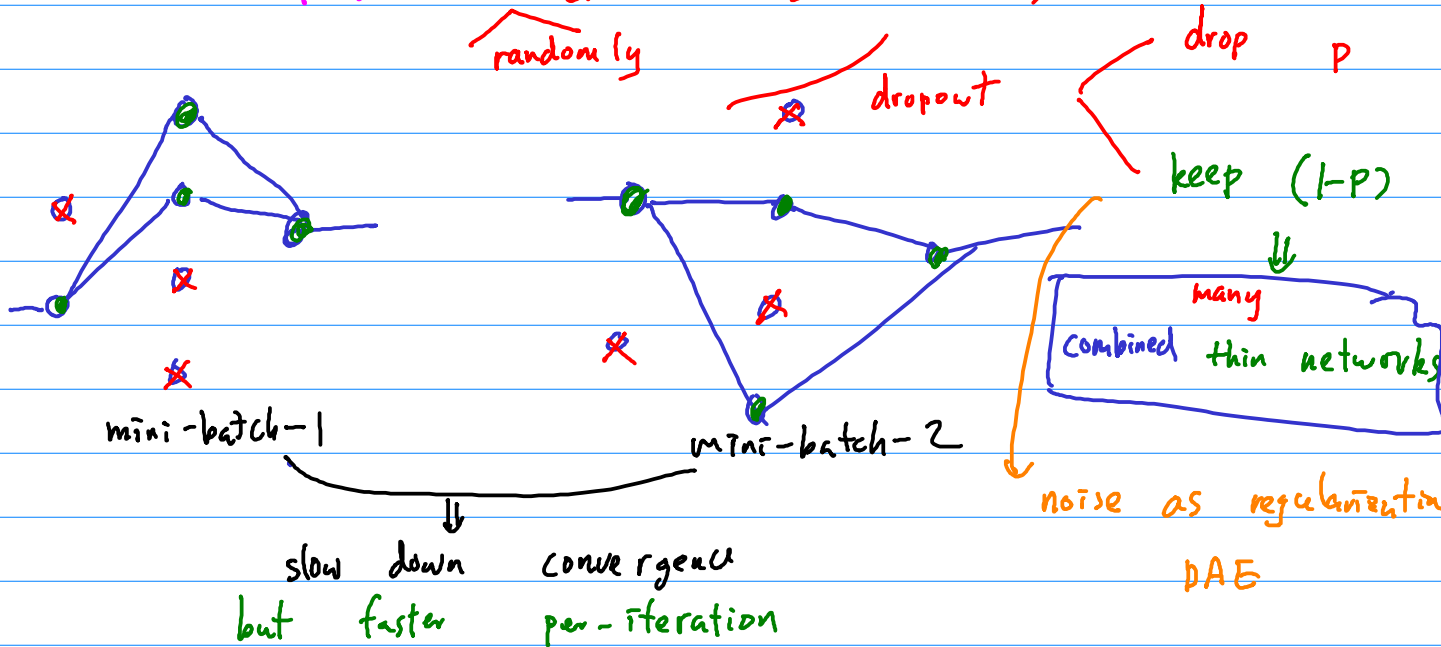 randomly
dropout
drop p
keep (1-p)
⇓
many
combined thin networks
mini-batch-1
mini-batch-2
⇓
noise as regularization
slow down convergence
DAE
but faster per-iteration